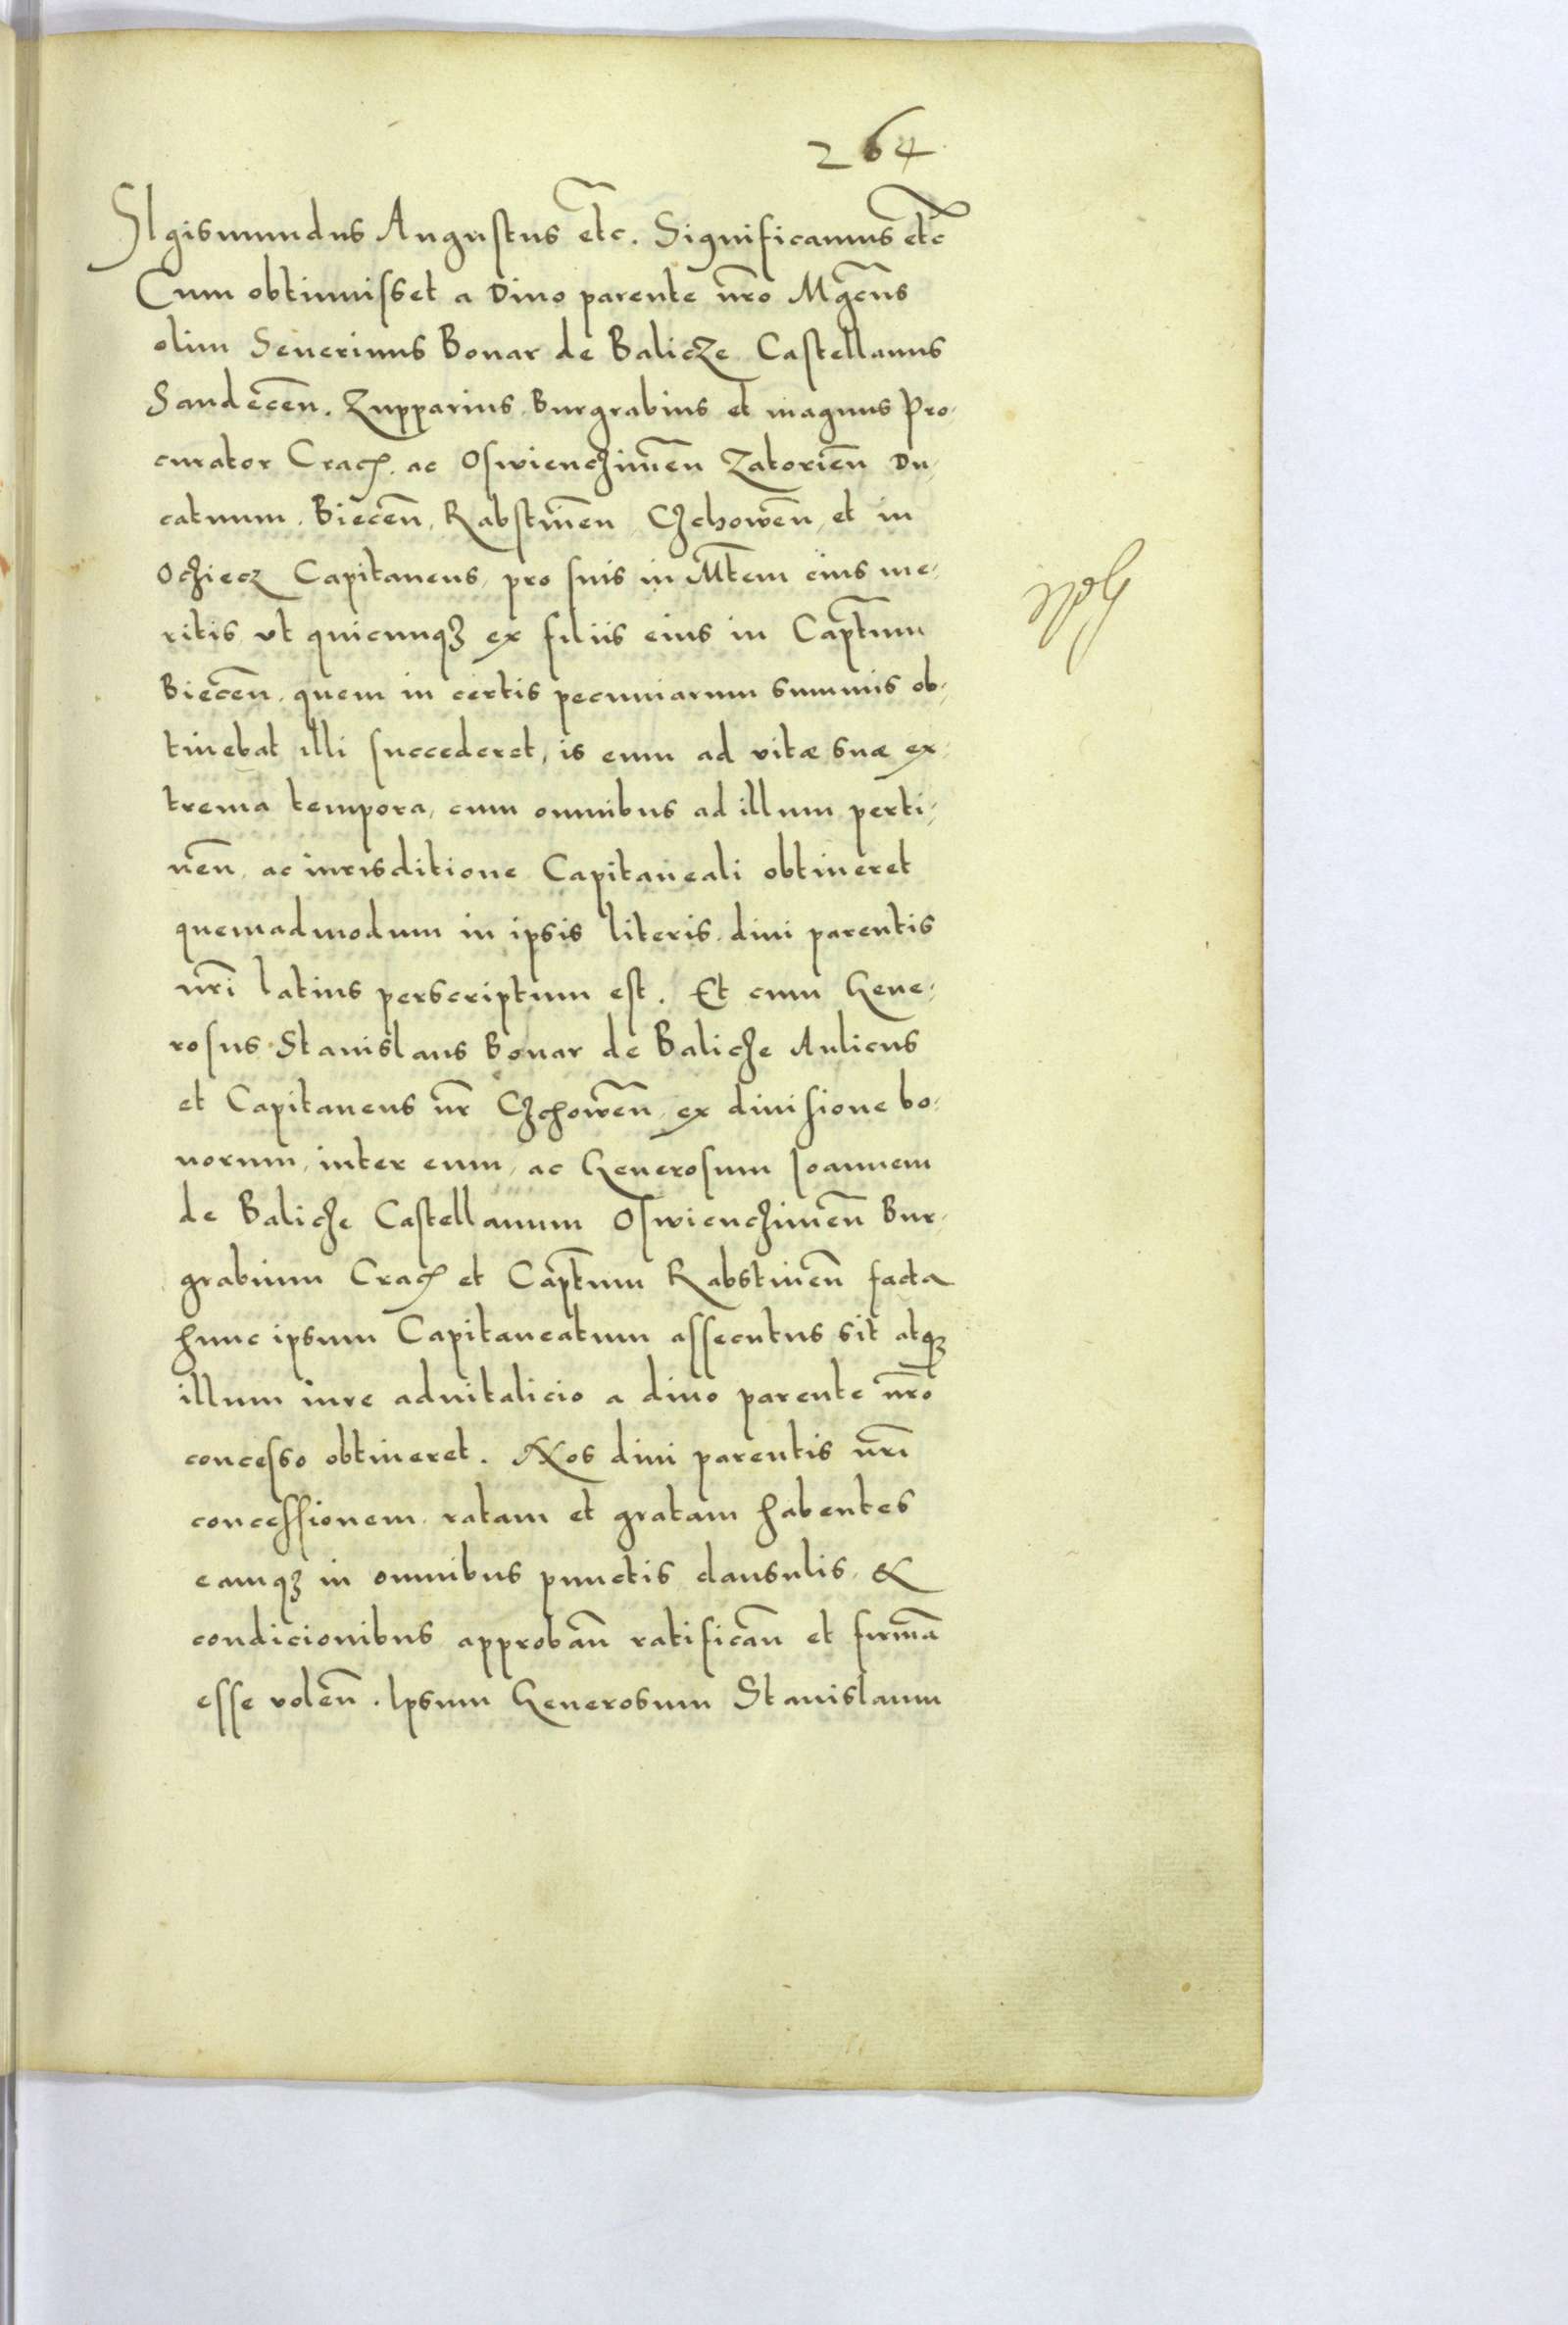 264
SIgismundus Augustus etc̃. Significamus etc̃
Cum obtinuisset a Diuo parente nr̃o Mgc̃us
olim Seuerinus Bonar de Balicze Castellanus
Sandecen̄. Zupparius, Burgrabius et magnus Pro,
curator Crac̃. ac Oswienczimen̄ Zatorien̄ Du,
catuum. Biecen̄, Rabstinen̄ Czchowen̄, et in
Ocziecz Capitaneus, pro suis in Mt̃em eius me,
ritis vt quicunqz ex filiis eius in Capt̃um
Biecen̄. quem in certis pecuniarum summis ob,
tinebat illi succederet, is eum ad vitæ suæ ex,
trema tempora, cum omnibus ad illum perti,
nen̄. ac iurisditione Capitaneali obtineret
quemadmodum in ipsis literis. diui parentis
nr̃i latius perscriptum est. Et cum Gene,
rosus Stanislaus Bonar de Balicze Aulicus
et Capitaneus nr̃ Czchowen̄, ex diuisione bo,
norum, inter eum, ac Generosum Ioannem
de Balicze Castellanum Oswienczimen̄ Bur,
grabium Crac̃ et Capt̃um Rabstinen̄ facta
hunc ipsum Capitaneatum assecutus sit atqz
illum iure aduitalicio a diuo parente nr̃o
concesso obtineret. Nos diui parentis nr̃i
concessionem. ratam et gratam habentes
eamqz in omnibus punctis clausulis, &
condicionibus approban̄ ratifican̄ et firmã
esse volen̄. Ipsum Generosum Stanislaum